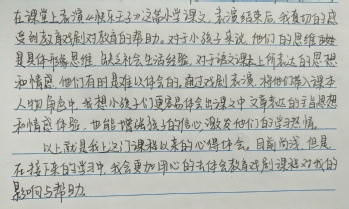 在课堂上表演《快乐王子》这篇小学课文,表演结束后,我真切的感
受到教育戏剧对教育的帮助。对于小孩子来说,他们的思维
是具体形象思维,缺乏社会生活经验,对于语文课本上所表达的思想
和情感,他们有时是难以体会的。通过戏剧表演,将他们带入课本
人物角色中,我想小孩子们更容易体会出课文中文章表达的主旨思想
和情感体验,也能增强孩子的信心,激发他们的学习热情。
以上就是我上这门课程以来的心得体会。目前尚浅,但是
在接下来的学习中,我会更加用心的去体会教育戏剧课程对我的
影响与帮助。